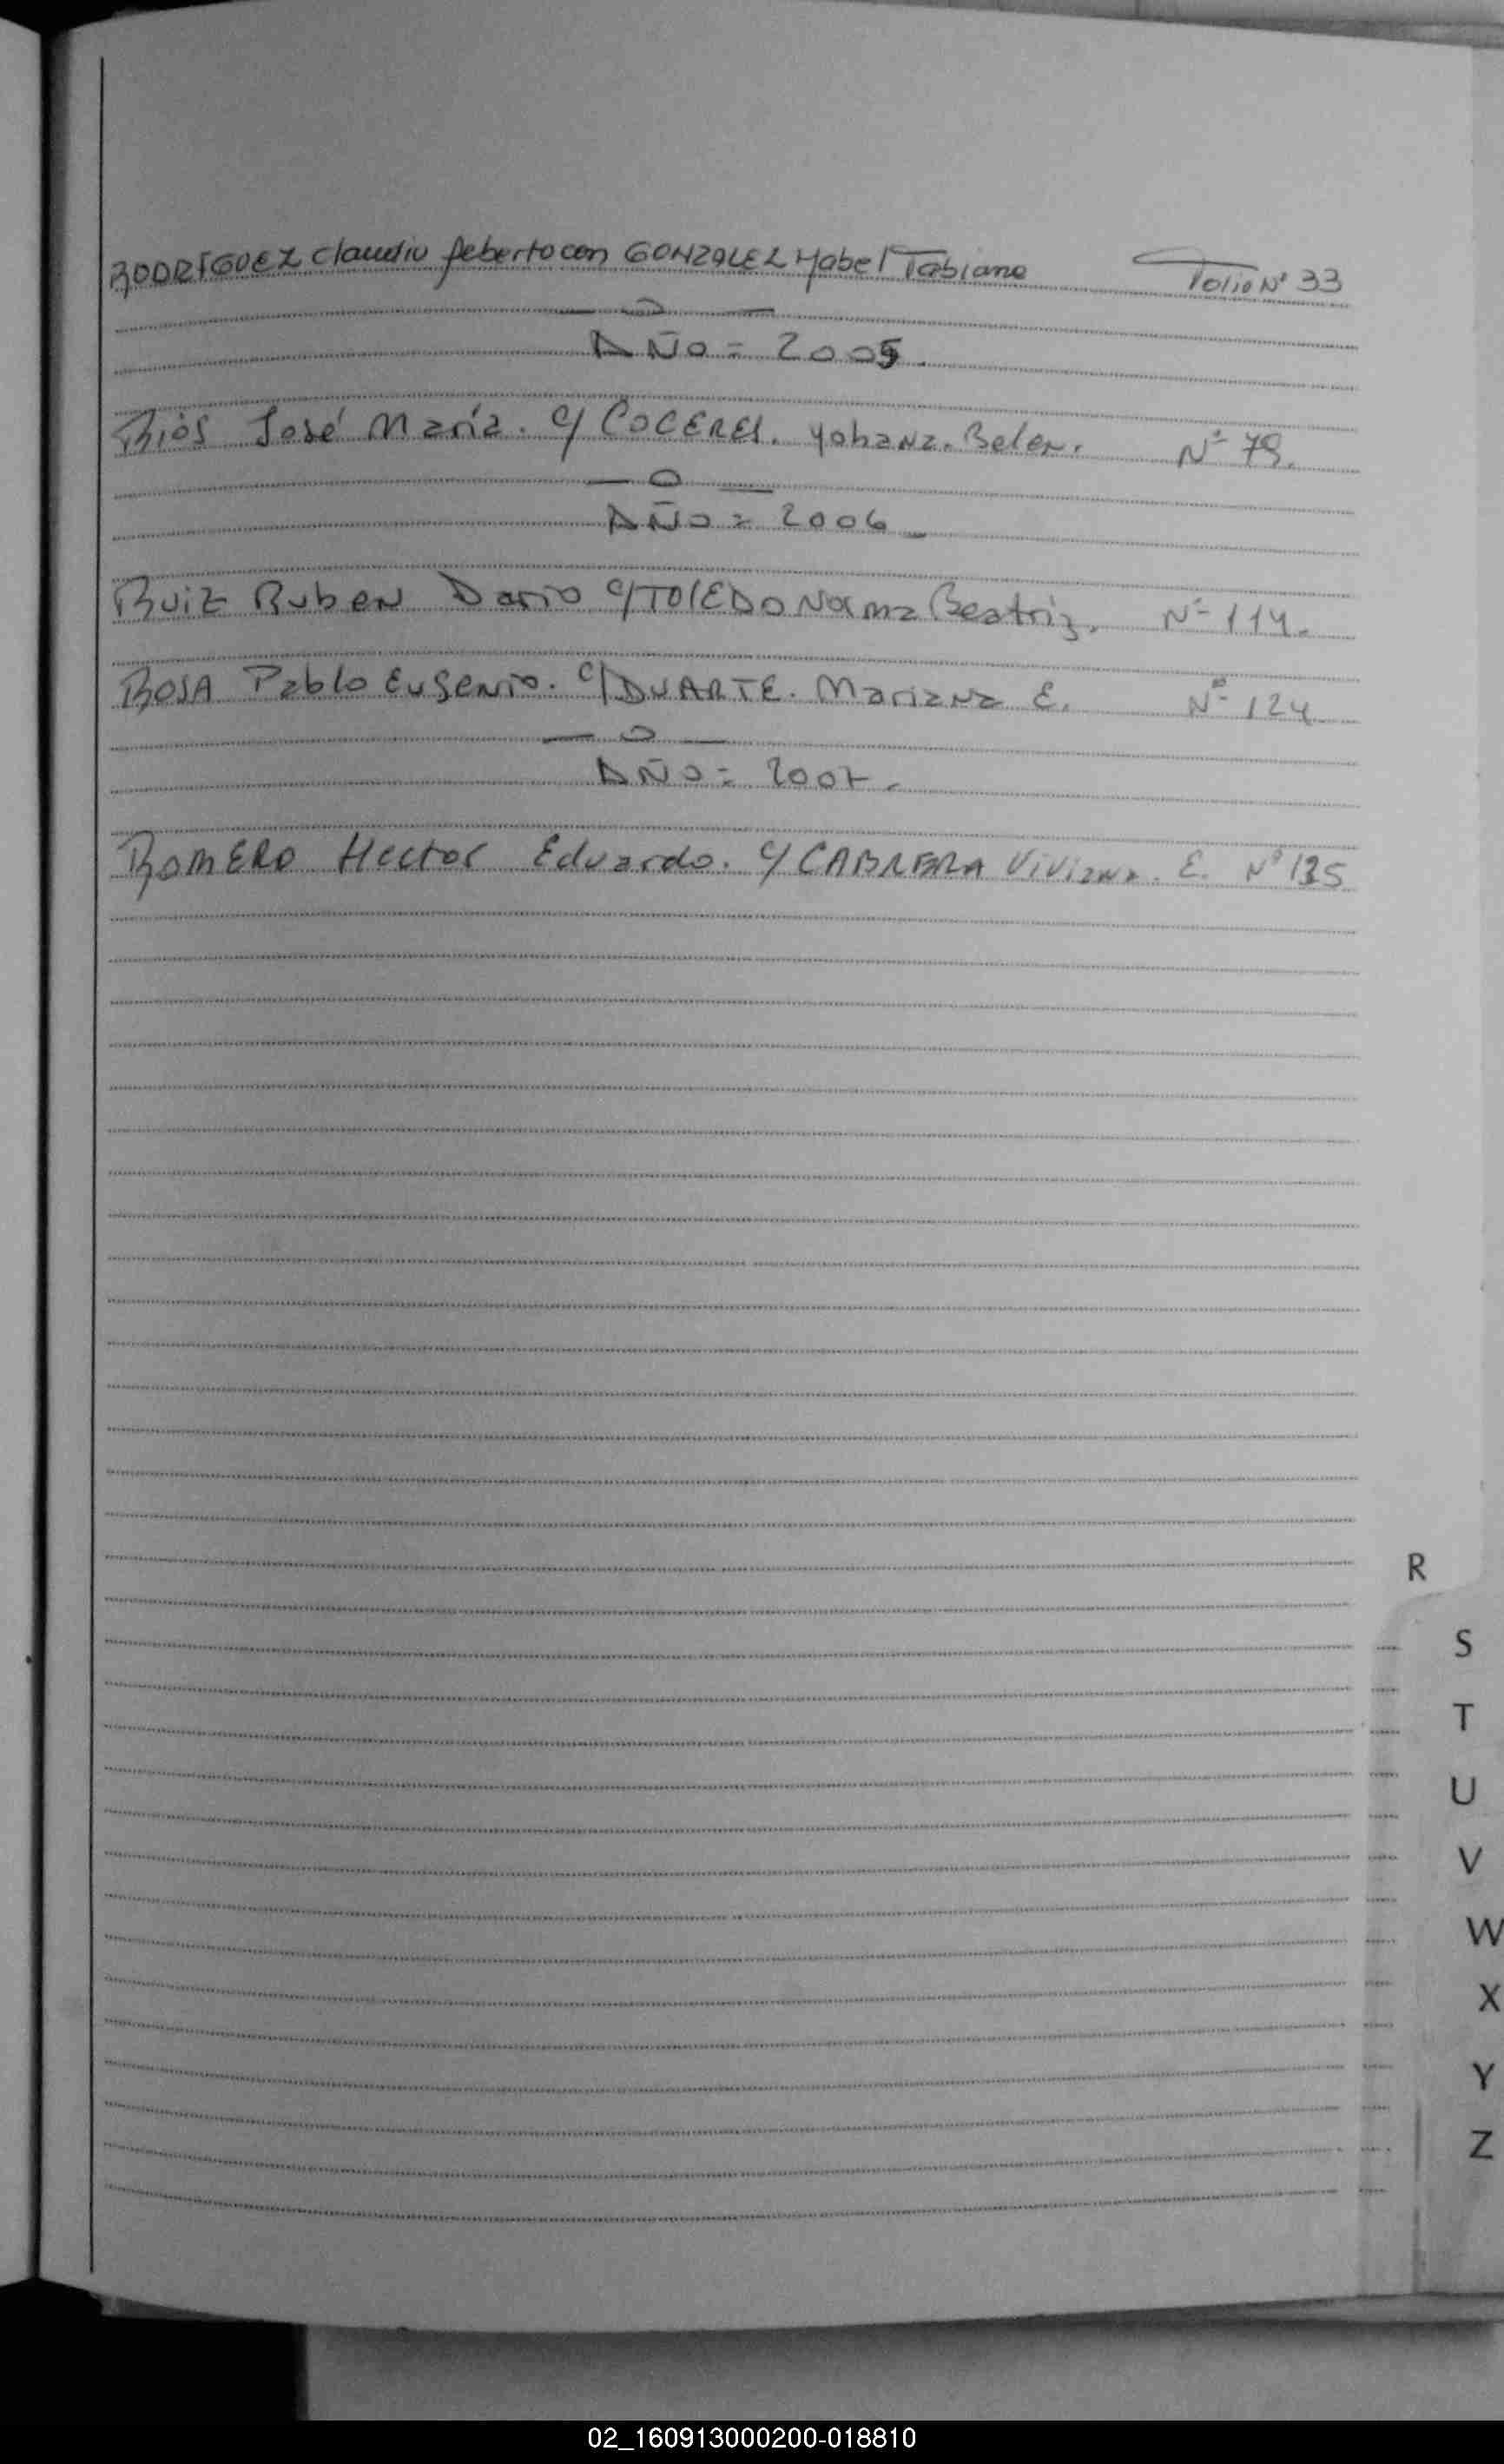 RODRÍGUEZ Claudio Heberto con GONZALEZ Mabel Fabiana Folio Nº 33
AÑO = 2005.
Ríos José María. c/ COCERES. Yohana. Belen. Nº 79.
— o —
AÑO = 2006
Ruiz Ruben Dario c/ TOLEDO Norma Beatriz. Nº 114.
ROSA Pablo Eugenio. c/ DUARTE. Mariana E. Nº 124
— o —
AÑO = 2007.
ROMERO Hector Eduardo. c/ CABRERA Viviana. E. Nº 135
R
S
T
U
V
W
X
Y
Z
02_160913000200-018810